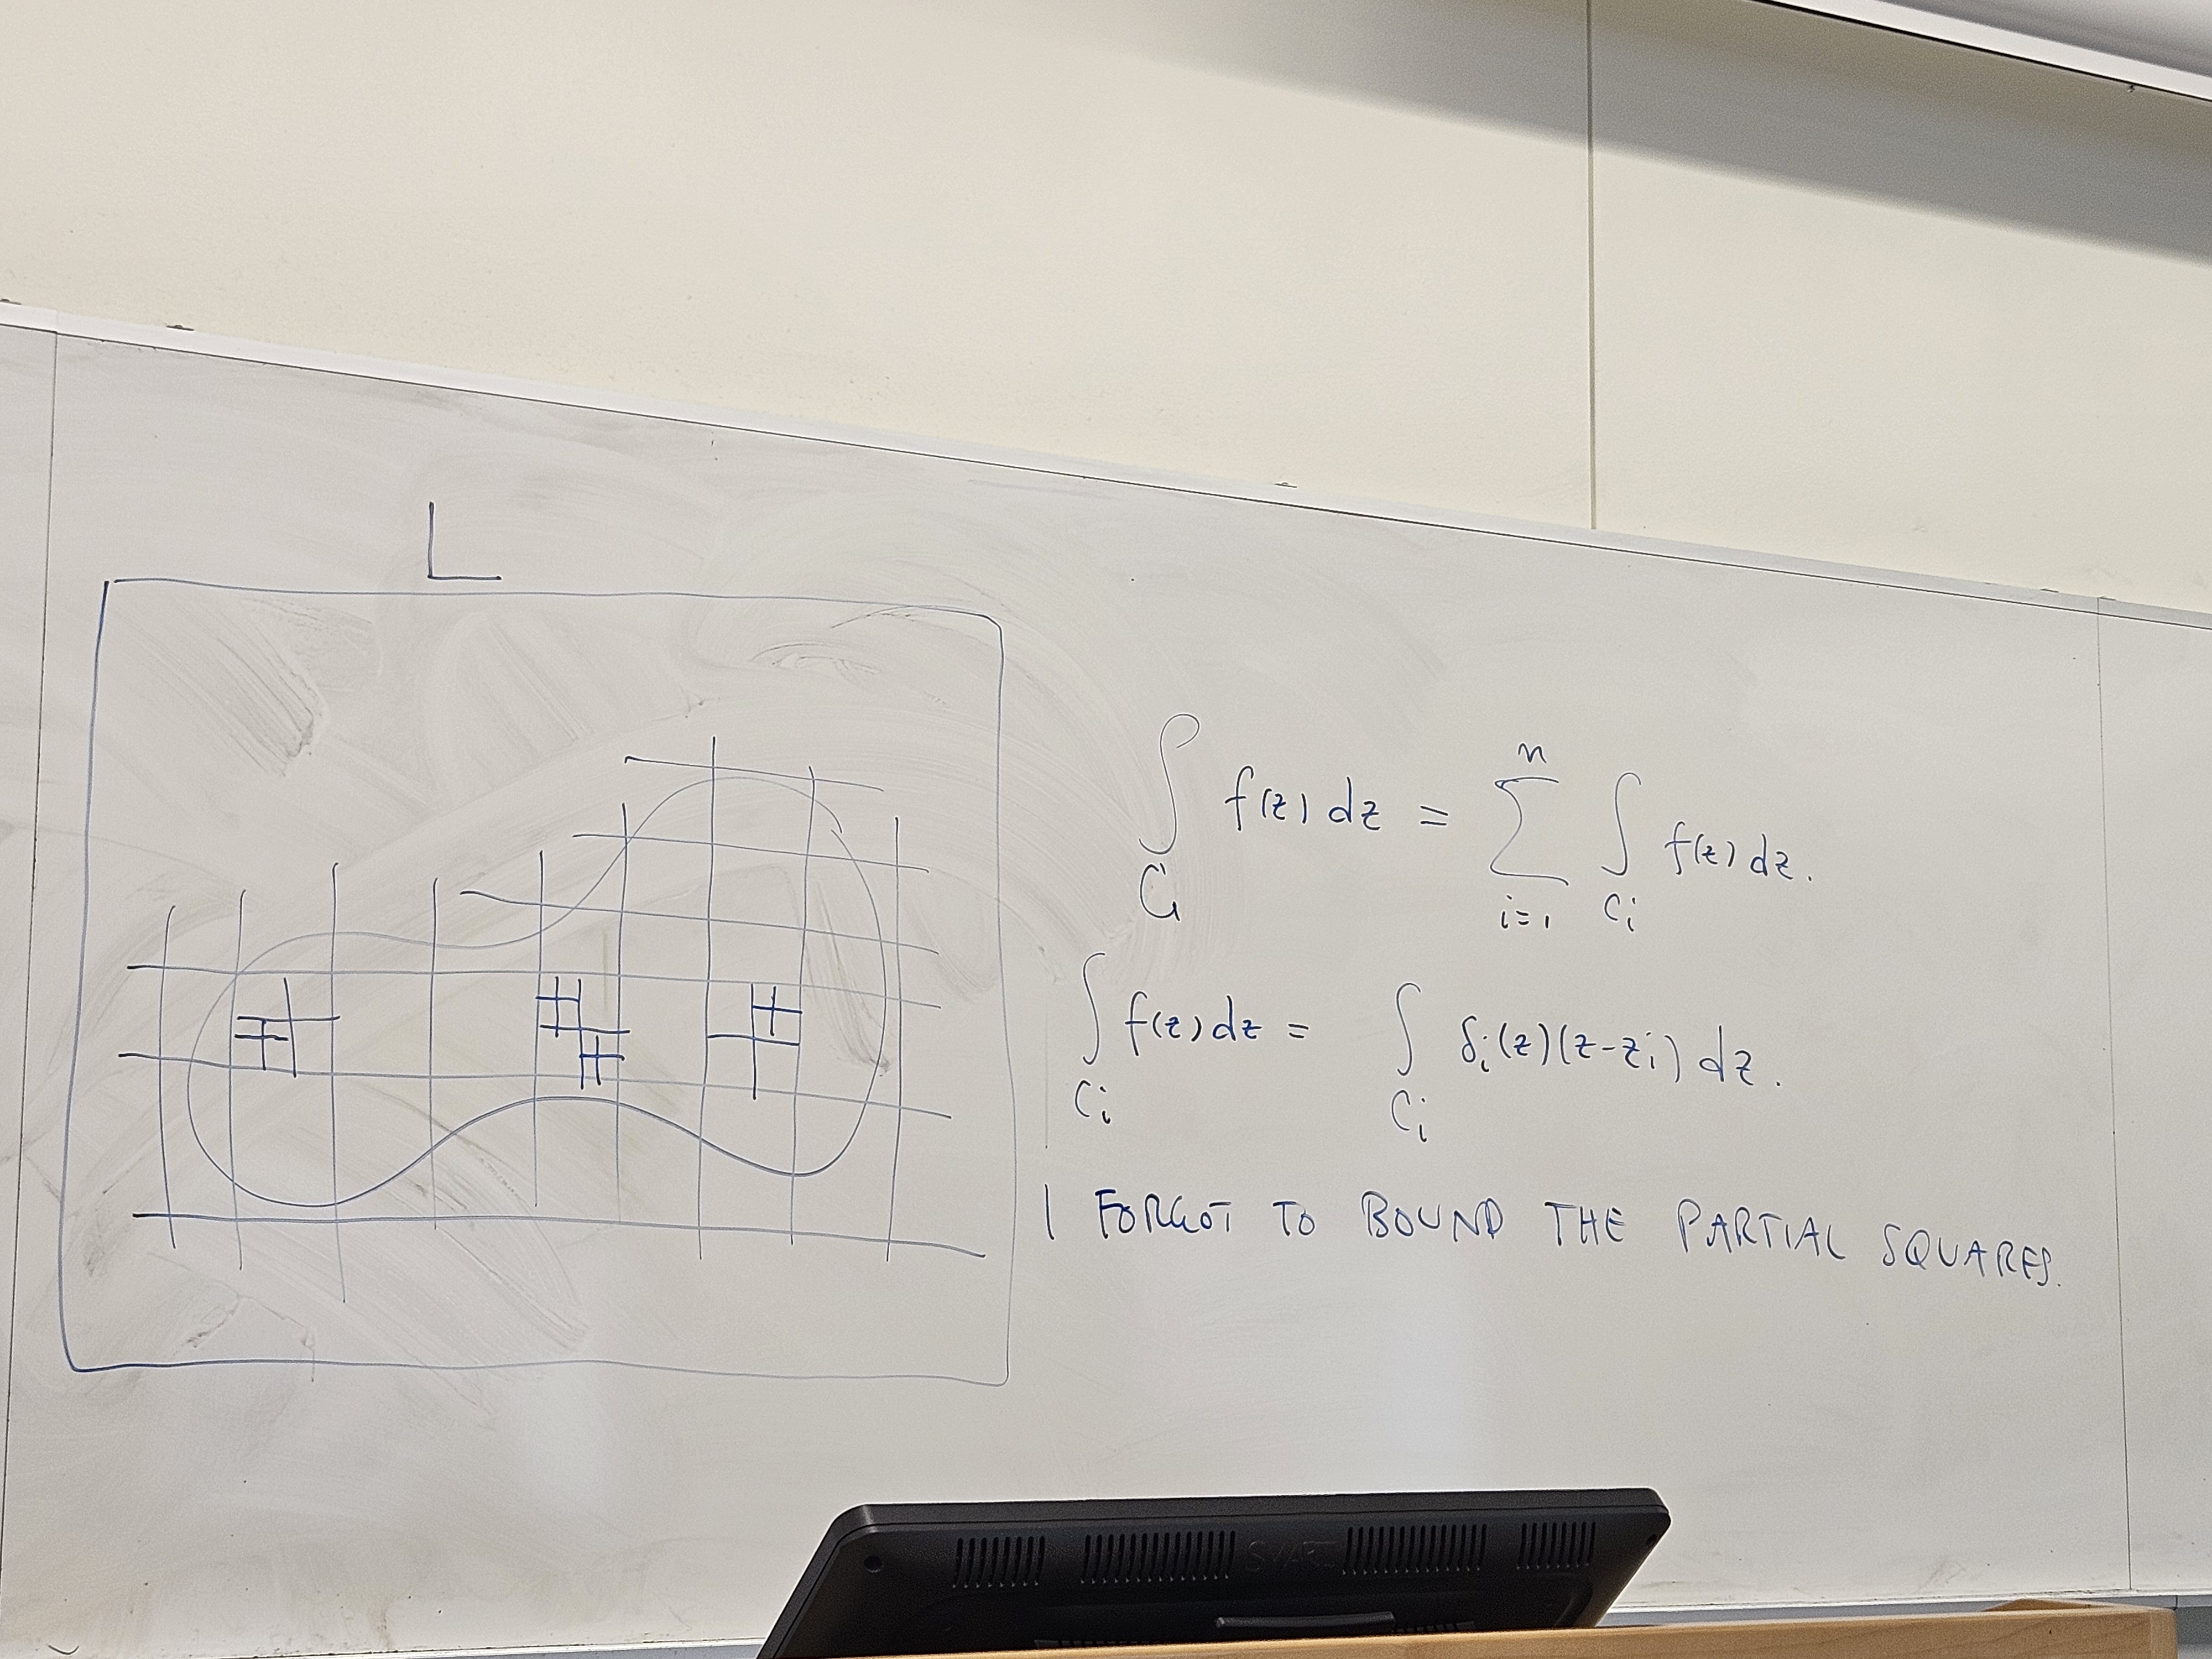 L
∫_C f(z) dz = ∑_{i=1}^{n} ∫_{C_i} f(z) dz.
∫_{C_i} f(z) dz = ∫_{C_i} δ_i(z)(z-z_i) dz.
I FORGOT TO BOUND THE PARTIAL SQUARES.
SMART